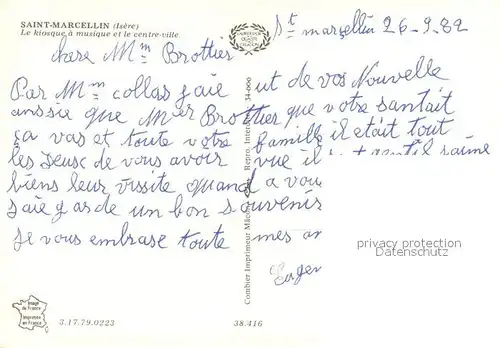 SAINT-MARCELLIN (Isère)
Le kiosque à musique et le centre-ville.
St marçellin 26-9.82
chere Mm Brottier
Par Mm collas j'aie ut de vos Nouvelle
aussie que Mer Brottier que votre santait
ça vas et toute votre famille il etait tout
les Jeuse de vous avoir vue il gentil
biens leur visite quand a vou
Jaie garde un bon souvenir
Je vous embrase toute mes
Eugen
Combier Imprimeur Mâcon
34-000
privacy protection
Datenschutz
Image de France
Imprimée en France
3.17.79.0223
38.416